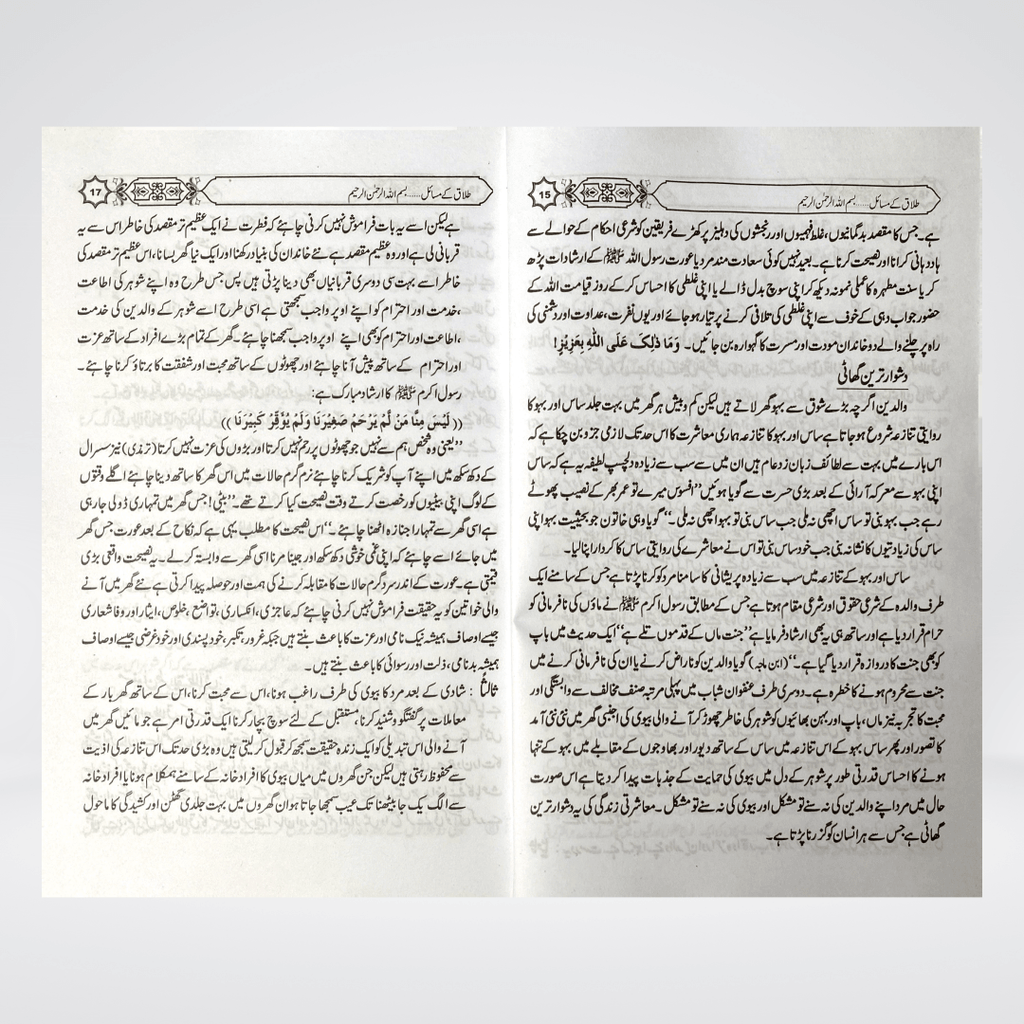 طلاق کے مسائل......بسم اللہ الرحمٰن الرحیم
15
ہے۔ جس کا مقصد بدگمانیوں، غلط فہمیوں اور رنجشوں کی دہلیز پر کھڑے فریقین کو شرعی احکام کے حوالے سے
یاد دہانی کرانا اور نصیحت کرنا ہے۔ بعید نہیں کوئی سعادت مند مرد یا عورت رسول اللہ ﷺ کے ارشادات پڑھ
کر یا سنت مطہرہ کا عملی نمونہ دیکھ کر اپنی سوچ بدل ڈالے یا اپنی غلطی کا احساس کر کے روز قیامت اللہ کے
حضور جواب دہی کے خوف سے اپنی غلطی کی تلافی کرنے پر تیار ہو جائے اور یوں نفرت، عداوت اور دشمنی کی
راہ پر چلنے والے دو خاندان مودت اور مسرت کا گہوارہ بن جائیں۔ وَمَا ذٰلِکَ عَلَی اللّٰهِ بِعَزِیْزٍ!
دشوار ترین گھاٹی
والدین اگرچہ بڑے شوق سے بہو گھر لاتے ہیں لیکن کم و بیش ہر گھر میں بہت جلد ساس اور بہو کا
روایتی تنازعہ شروع ہو جاتا ہے ساس اور بہو کا تنازعہ ہماری معاشرت کا اس حد تک لازمی جزو بن چکا ہے کہ
اس بارے میں بہت سے لطائف زبان زد عام ہیں ان میں سے سب سے زیادہ دلچسپ لطیفہ یہ ہے کہ ساس
اپنی بہو سے معرکہ آرائی کے بعد بڑی حسرت سے گویا ہوئیں ”افسوس میرے تو عمر بھر کے نصیب پھوٹے
رہے جب بہو بنی تو ساس اچھی نہ ملی جب ساس بنی تو بہو اچھی نہ ملی۔“ گویا وہی خاتون جو بحیثیت بہو اپنی
ساس کی زیادتیوں کا نشانہ بنی جب خود ساس بنی تو اس نے معاشرے کی روایتی ساس کا کردار اپنا لیا۔
ساس اور بہو کے تنازعہ میں سب سے زیادہ پریشانی کا سامنا مرد کو کرنا پڑتا ہے جس کے سامنے ایک
طرف والدہ کے شرعی حقوق اور شرعی مقام ہوتا ہے جس کے مطابق رسول اکرم ﷺ نے ماؤں کی نافرمانی کو
حرام قرار دیا ہے اور ساتھ ہی یہ بھی ارشاد فرمایا ہے ”جنت ماں کے قدموں تلے ہے“ ایک حدیث میں باپ
کو بھی جنت کا دروازہ قرار دیا گیا ہے۔“ (ابن ماجہ) گویا والدین کو ناراض کرنے یا ان کی نافرمانی کرنے میں
جنت سے محروم ہونے کا خطرہ ہے۔ دوسری طرف عنفوان شباب میں پہلی مرتبہ صنف مخالف سے وابستگی اور
محبت کا تجربہ نیز ماں، باپ اور بہن بھائیوں کو شوہر کی خاطر چھوڑ کر آنے والی بیوی کی اجنبی گھر میں نئی نئی آمد
کا تصور اور پھر ساس بہو کے اس تنازعہ میں ساس کے ساتھ دیور اور بھاوجوں کے مقابلے میں بہو کے تنہا
ہونے کا احساس قدرتی طور پر شوہر کے دل میں بیوی کی حمایت کے جذبات پیدا کر دیتا ہے اس صورت
حال میں مرد اپنے والدین کی نہ سنے تو مشکل اور بیوی کی نہ سنے تو مشکل۔ معاشرتی زندگی کی یہ دشوار ترین
گھاٹی ہے جس سے ہر انسان کو گزرنا پڑتا ہے۔
طلاق کے مسائل......بسم اللہ الرحمٰن الرحیم
17
ہے لیکن اسے یہ بات فراموش نہیں کرنی چاہئے کہ فطرت نے ایک عظیم تر مقصد کی خاطر اس سے یہ
قربانی لی ہے اور وہ عظیم مقصد ہے نئے خاندان کی بنیاد رکھنا اور ایک نیا گھر بسانا، اس عظیم تر مقصد کی
خاطر اسے بہت سی دوسری قربانیاں بھی دینا پڑتی ہیں پس جس طرح وہ اپنے شوہر کی اطاعت
،خدمت اور احترام کو اپنے اوپر واجب سمجھتی ہے اسی طرح اسے شوہر کے والدین کی خدمت
،اطاعت اور احترام کو بھی اپنے اوپر واجب سمجھنا چاہئے۔ گھر کے تمام بڑے افراد کے ساتھ عزت
اور احترام کے ساتھ پیش آنا چاہئے اور چھوٹوں کے ساتھ محبت اور شفقت کا برتاؤ کرنا چاہئے۔
رسول اکرم ﷺ کا ارشاد مبارک ہے:
(( لَیْسَ مِنَّا مَنْ لَّمْ یَرْحَمْ صَغِیْرَنَا وَلَمْ یُوَقِّرْ کَبِیْرَنَا ))
”یعنی وہ شخص ہم سے نہیں جو چھوٹوں پر رحم نہیں کرتا اور بڑوں کی عزت نہیں کرتا (ترمذی) نیز سسرال
کے دکھ سکھ میں اپنے آپ کو شریک کرنا چاہئے نرم گرم حالات میں اس گھر کا ساتھ دینا چاہئے اگلے وقتوں
کے لوگ اپنی بیٹیوں کو رخصت کرتے وقت نصیحت کیا کرتے تھے۔ ”بیٹی! جس گھر میں تمہاری ڈولی جا رہی
ہے اسی گھر سے تمہارا جنازہ اٹھنا چاہئے۔“ اس نصیحت کا مطلب یہی ہے کہ نکاح کے بعد عورت جس گھر
میں جائے اسے چاہئے کہ اپنی غمی خوشی دکھ سکھ اور جینا مرنا اسی گھر سے وابستہ کر لے۔ یہ نصیحت واقعی بڑی
قیمتی ہے۔ عورت کے اندر سرد گرم حالات کا مقابلہ کرنے کی ہمت اور حوصلہ پیدا کرتی ہے نئے گھر میں آنے
والی خواتین کو یہ حقیقت فراموش نہیں کرنی چاہئے کہ عاجزی، انکساری، تواضع، خلوص، ایثار اور وفا شعاری
جیسے اوصاف ہمیشہ نیک نامی اور عزت کا باعث بنتے ہیں جبکہ غرور، تکبر، خود پسندی اور خود غرضی جیسے اوصاف
ہمیشہ بدنامی، ذلت اور رسوائی کا باعث بنتے ہیں۔
ثالثاً : شادی کے بعد مرد کا بیوی کی طرف راغب ہونا، اس سے محبت کرنا، اس کے ساتھ گھر بار کے
معاملات پر گفتگو و شنید کرنا، مستقبل کے لئے سوچ بچار کرنا ایک قدرتی امر ہے جو مائیں گھر میں
آنے والی اس تبدیلی کو ایک زندہ حقیقت سمجھ کر قبول کر لیتی ہیں وہ بڑی حد تک اس تنازعہ کی اذیت
سے محفوظ رہتی ہیں لیکن جن گھروں میں میاں بیوی کا افراد خانہ کے سامنے ہمکلام ہونا یا افراد خانہ
سے الگ یک جا بیٹھنا تک عیب سمجھا جاتا ہو ان گھروں میں بہت جلدی گھٹن اور کشیدگی کا ماحول